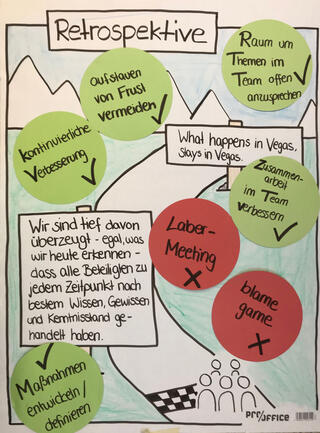 Retrospektive
Raum um
Themen im
Team offen
anzusprechen
aufstauen
von Frust
vermeiden
kontinuierliche
Verbesserung
What happens in Vegas,
stays in Vegas.
Zusammen-
arbeit
im Team
verbessern
Wir sind tief davon
überzeugt - egal, was
wir heute erkennen -
dass alle Beteiligten zu
jedem Zeitpunkt nach
bestem Wissen, Gewissen
und Kenntnisstand ge-
handelt haben.
Laber-
Meeting
blame
game
Maßnahmen
entwickeln/
definieren
pro/office